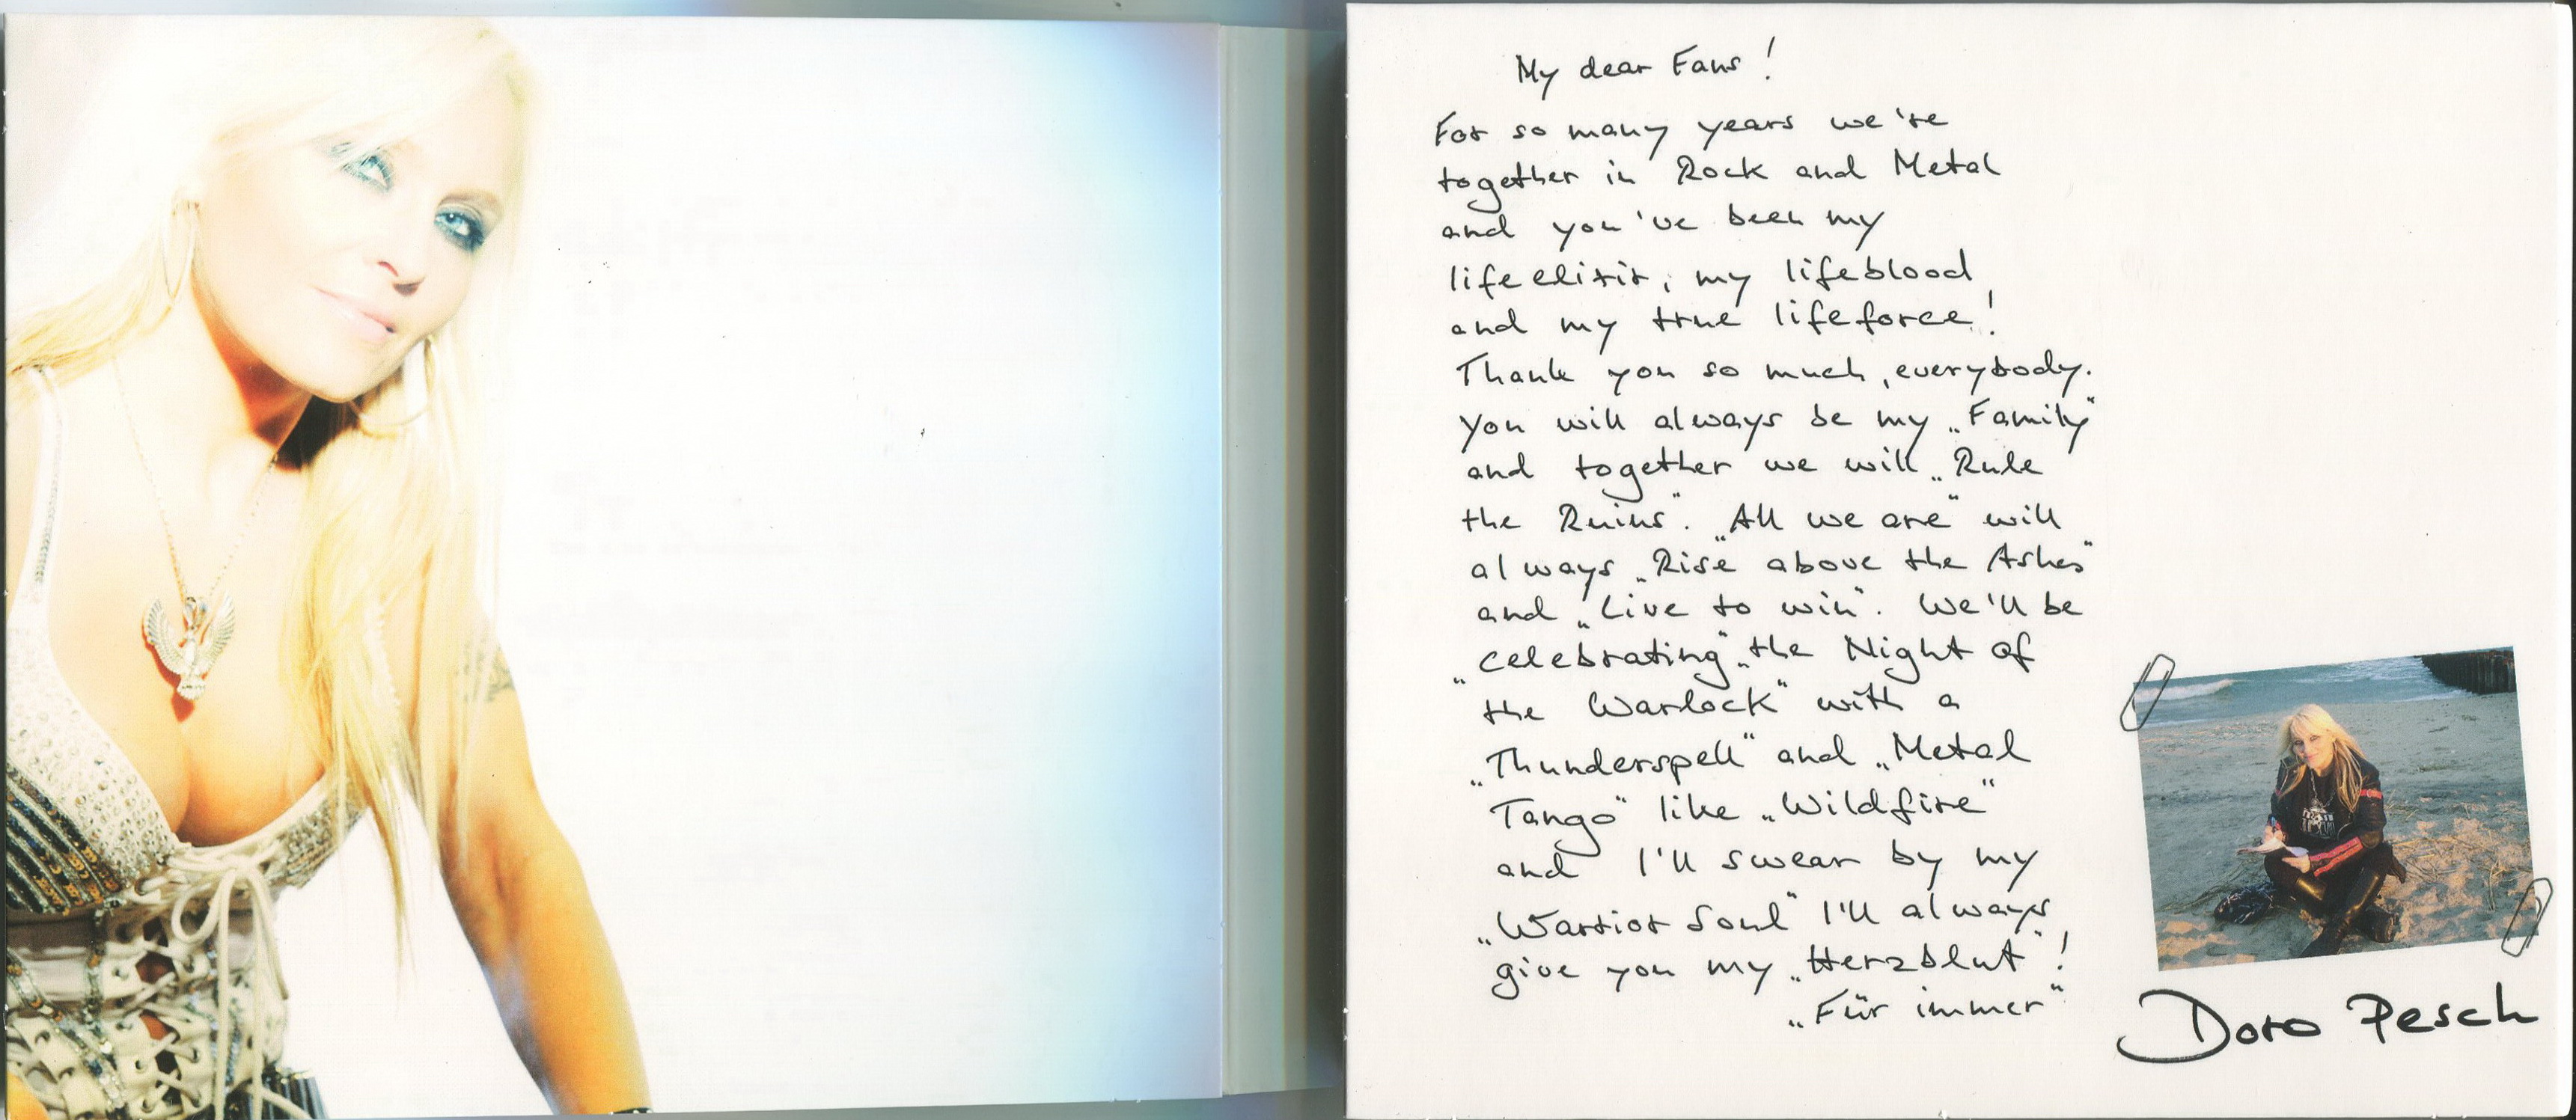 My dear Fans!
For so many years we're
together in Rock and Metal
and you've been my
lifeelixir, my lifeblood
and my true lifeforce!
Thank you so much, everybody.
You will always be my „Family“
and together we will „Rule
the Ruins“. „All we are“ will
always „Rise above the Ashes“
and „Live to win“. We'll be
„celebrating“ „the Night of
the Warlock“ with a
„Thunderspell“ and „Metal
Tango“ like „Wildfire“
and I'll swear by my
„Warrior Soul“ I'll always
give you my „Herzblut“!
„Für immer“
Doro Pesch